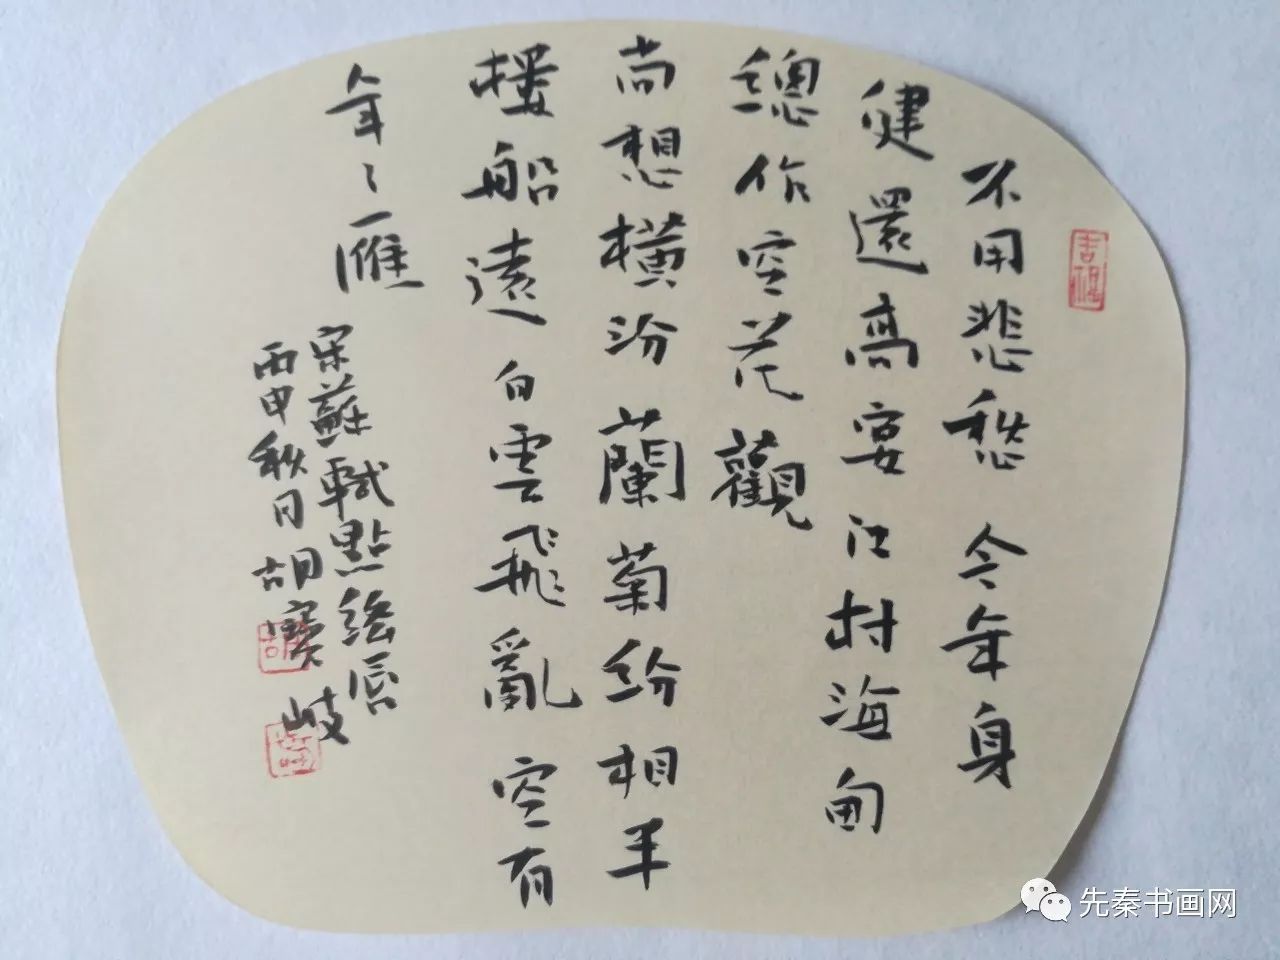 不用悲愁 今年身
健還高宴江村海甸
總作空花觀
尚想橫汾蘭菊紛相半
樓船遠白雲飛亂空有
年〻雁
宋蘇軾點絳唇
丙申秋月胡寶岐
吉祥
胡
先秦书画网